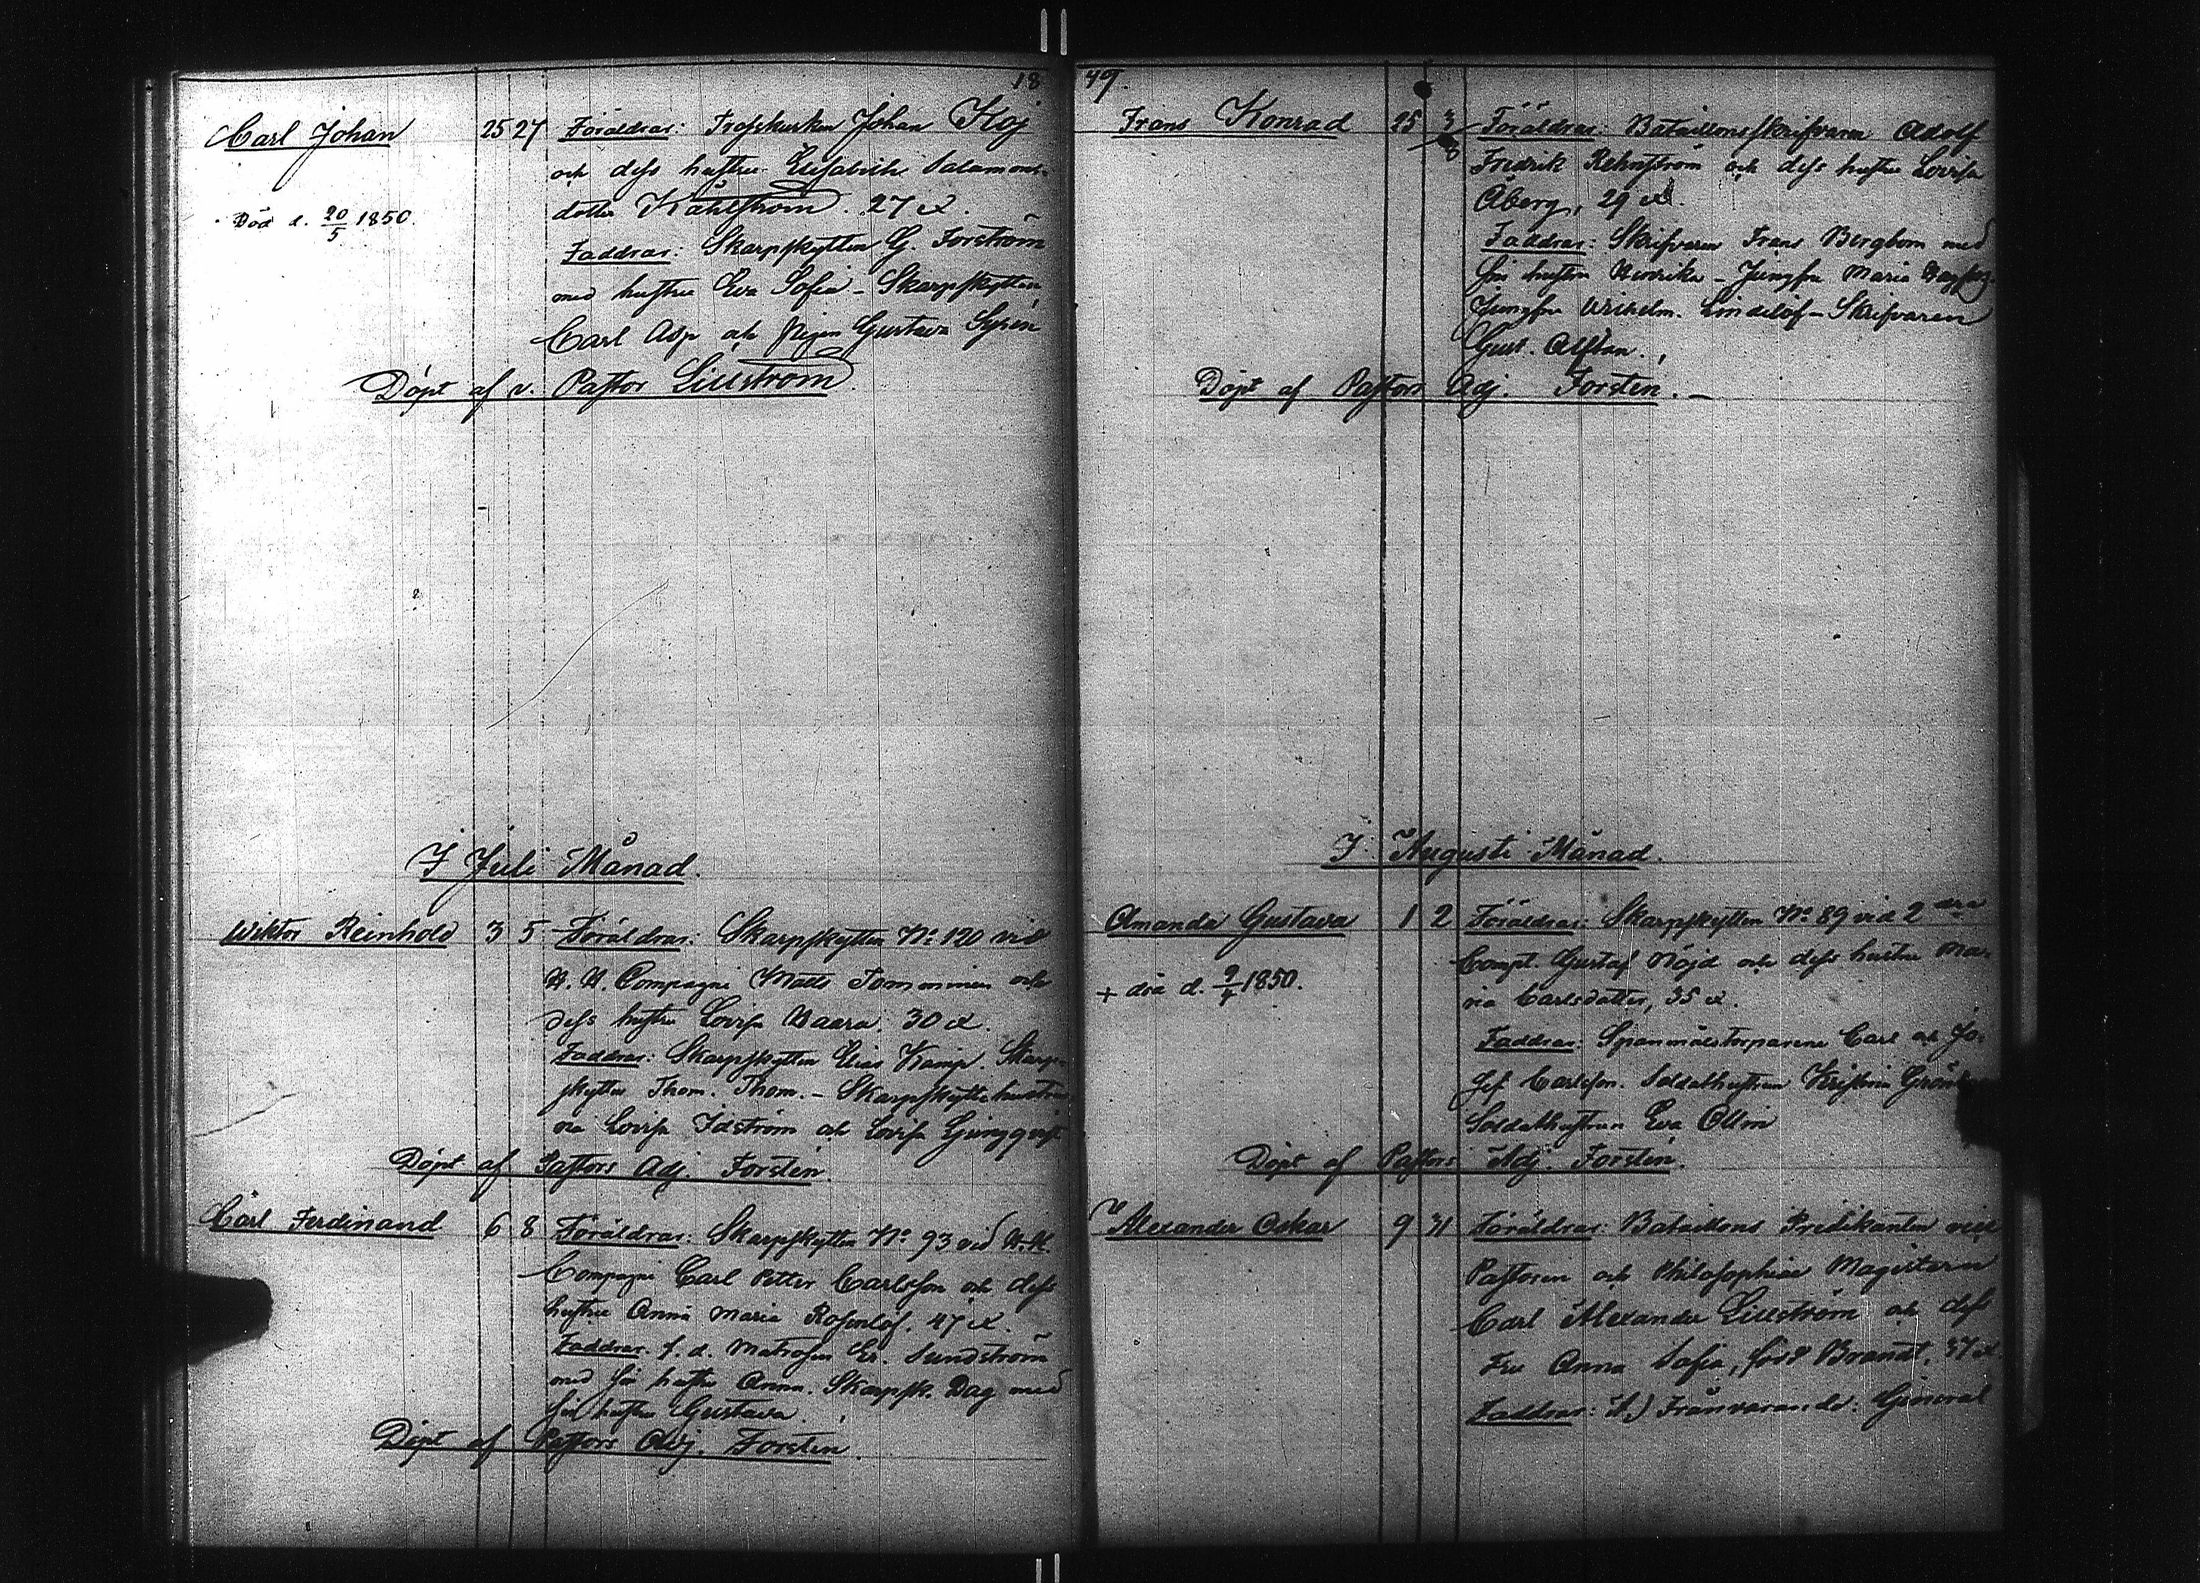 18
Carl Johan 25 27 Föräldrar: Trosskusken Johan Koj
och dess hustru Elisabeth Salamons-
dotter Kåhlström. 27 år.
Död d. 20/5 1850.
Faddrar: Skarpskytten G. Forström
med hustru Eva Sofia - Skarpskytten
Carl Asp och Pigan Gustava Syrén
Döpt af v. Pastor Lillström.
I Juli Månad.
Wiktor Reinhold 3 5 Föräldrar: Skarpskytten No 120 vid
Compagni Matts Tomminen och
dess hustru Lovisa Waara. 30 år.
Faddrar: Skarpskytten Elias Kamp. Skarp-
skytten Thom. Thom. - Skarpskyttehustrur-
na Lovisa Idström och Lovisa Ljungqvist
Döpt af Pastors Adj. Forstén.
Carl Ferdinand 6 8 Föräldrar: Skarpskytten No 93 vid
Compagni Carl Petter Carlsson och dess
hustru Anna Maria Rosenlöf. 47 år.
Faddrar. f. d. Matrosen Er. Sundström
med sin hustru Anna. Skarpsk. Dag med
sin hustru Gustava.
Döpt af Pastors Adj. Forstén.
49.
Frans Konrad 25 3/8 Föräldrar: Bataillonsskrifvaren Adolf
Fredrik Rehnström och dess hustru Lovisa
Åberg, 29 år.
Faddrar: Skrifvaren Frans Bergbom med
sin hustru Henrika - Jungfru Maria
Jungfru Wilhelm. Lindelöf - Skrifvaren
Gust. Alftan.
Döpt af Pastors Adj. Forstén. -
I Augusti Månad.
Amanda Gustava 1 2 Föräldrar: Skarpskytten No 89 vid 2 dra
Comp. Gustaf Nöjd och dess hustru Ma-
ria Carlsdotter, 35 år.
+ död d. 9/4 1850.
Faddrar: Spanmålstorparene Carl och Jo-
sef Carlsson. Soldathustrun Kristina
Soldathustrun Eva Ollin
Döpt af Pastors Adj. Forstén.
Alexander Oskar 9 31 Föräldrar: Bataillons Predikanten vice
Pastoren och Philosophiae Magistern
Carl Alexander Lillström och dess
Fru Anna Sofia, född Brandt, 37 år.
Faddrar: A.) Frånvarande: General